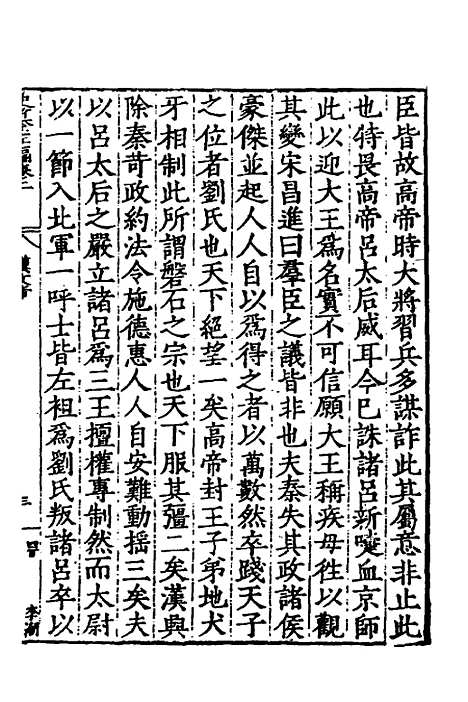 臣皆故高帝時大將習兵多謀詐此其屬意非止此
也特畏高帝呂太后威耳今已誅諸呂新喋血京師
此以迎大王爲名實不可信願大王稱疾毋徃以觀
其變宋昌進曰羣臣之議皆非也夫秦失其政諸侯
豪傑並起人人自以爲得之者以萬數然卒踐天子
之位者劉氏也天下絕望一矣高帝封王子弟地犬
牙相制此所謂磐石之宗也天下服其彊二矣漢興
除秦苛政約法令施德惠人人自安難動揺三矣夫
以呂太后之嚴立諸呂爲三王擅權專制然而太尉
以一節入北軍一呼士皆左袒爲劉氏叛諸呂卒以
三